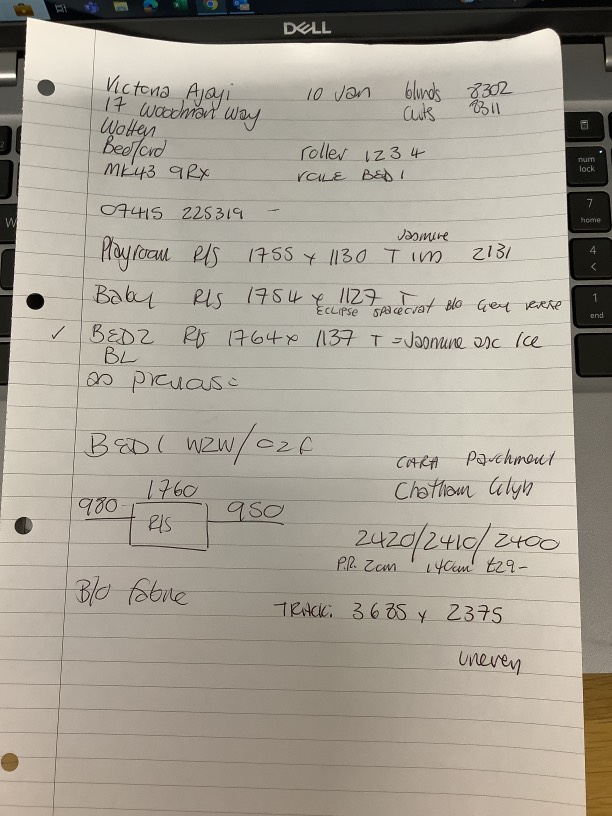 DELL
Victoria Ajayi 10 Jan blinds 8302
17 Woodman Way cuts 8311
Wotten
Bedford roller 1 2 3 4
MK43 9RX BED 1
07415 225319 -
Jasmine
Playroom R/S 1755 x 1130 T 2131
Baby R/S 1754 x 1127 T
ECLIPSE spacecraft B/O Grey reverse
✓ BED2 R/S 1764 x 1137 T = Jasmine asc Ice
BL
BED 1 W2W/
CARA Parchment
1760 Chatham Glyb
980 R/S 950
2420/2410/2400
P.R. 2cm 140cm £29-
B/O fabric
TRACK: 3685 x 2375
uneven
num lock
7 home
4
1 end